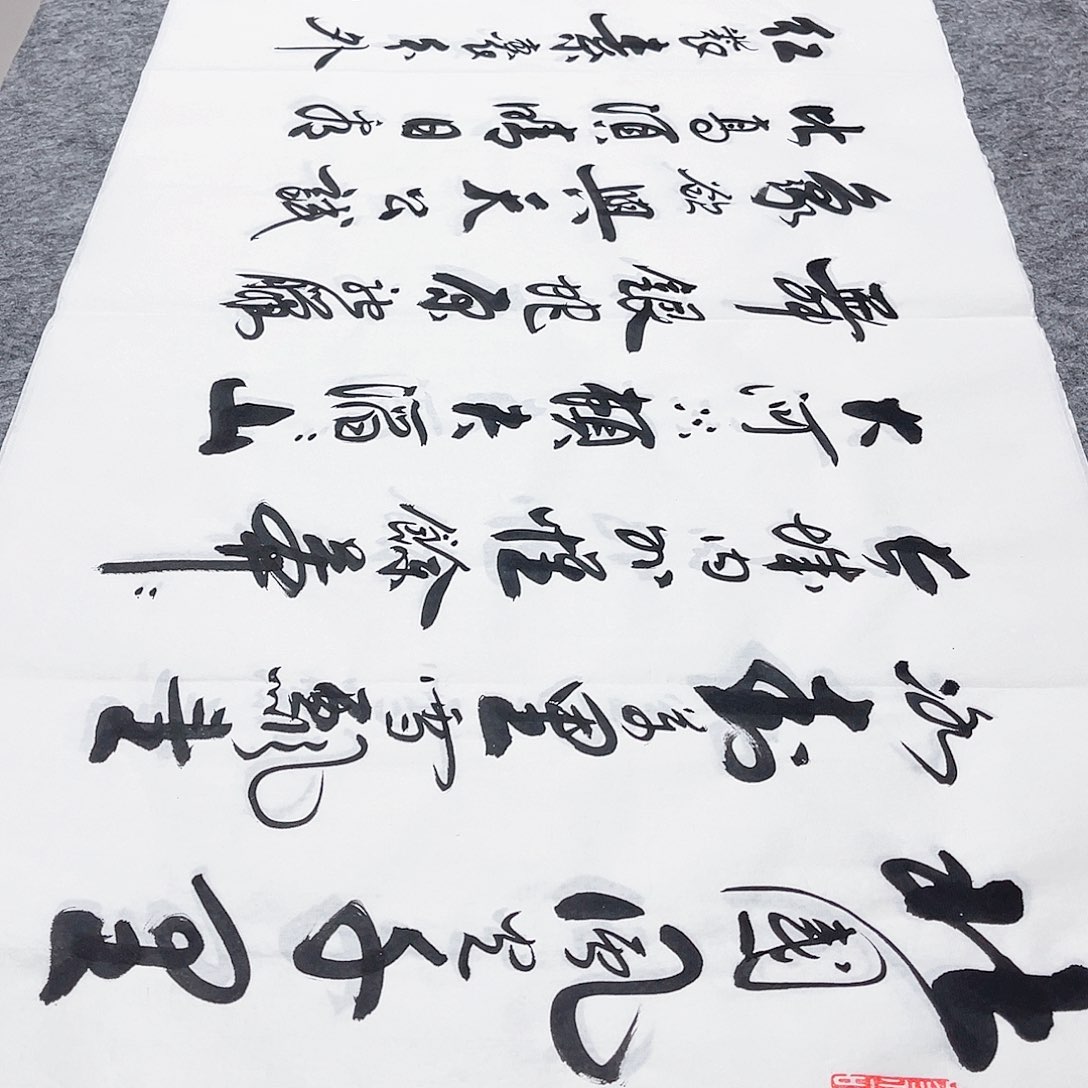 北國風光千里
冰封萬里雪飄望
長城內外惟餘莽々
大河上下頓失滔々山
舞銀蛇原馳蠟
象欲與天公試
比高須晴日看
紅裝素裹分外